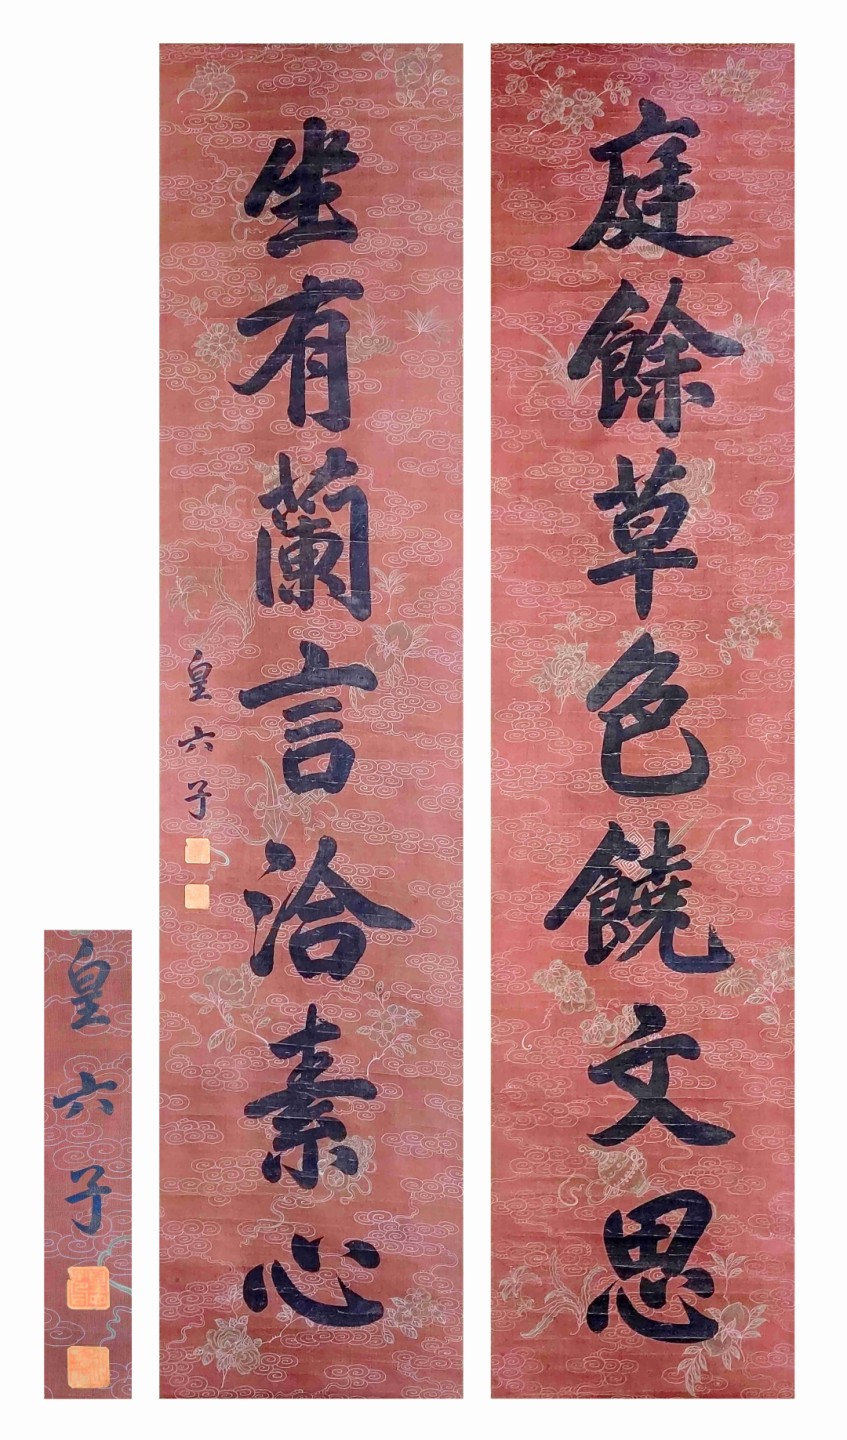 庭餘草色饒文思
坐有蘭言洽素心
皇六子
皇六子